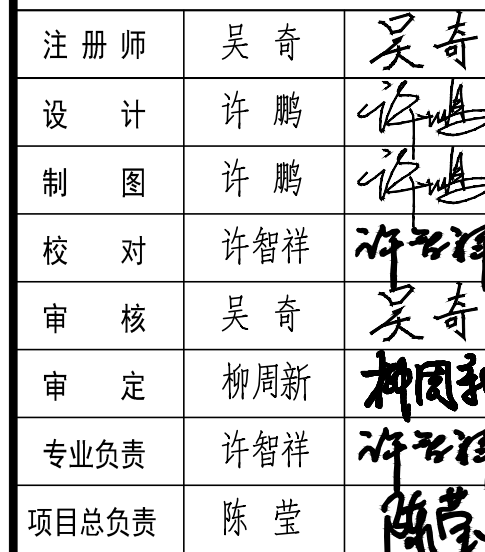 注册师 吴奇 吴奇
设计 许鹏 许鹏
制图 许鹏 许鹏
校对 许智祥 许智祥
审核 吴奇 吴奇
审定 柳周新 柳周新
专业负责 许智祥 许智祥
项目总负责 陈莹 陈莹